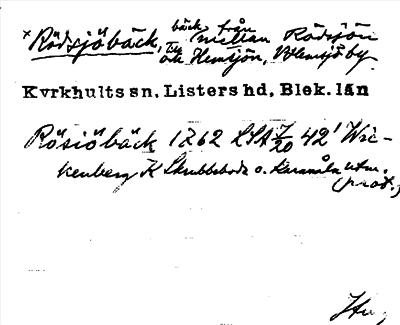 × Rödsjöbäck, bäck från
mellan Rödsjön
o. Hemsjön, Olemsjö by
Kyrkhults sn, Listers hd, Blek. län
Rösiöbäck 1762 LSA 7/20 42' Wic-
kenberg K Skrubbeboda o. Karamåla utm.
(prot.)